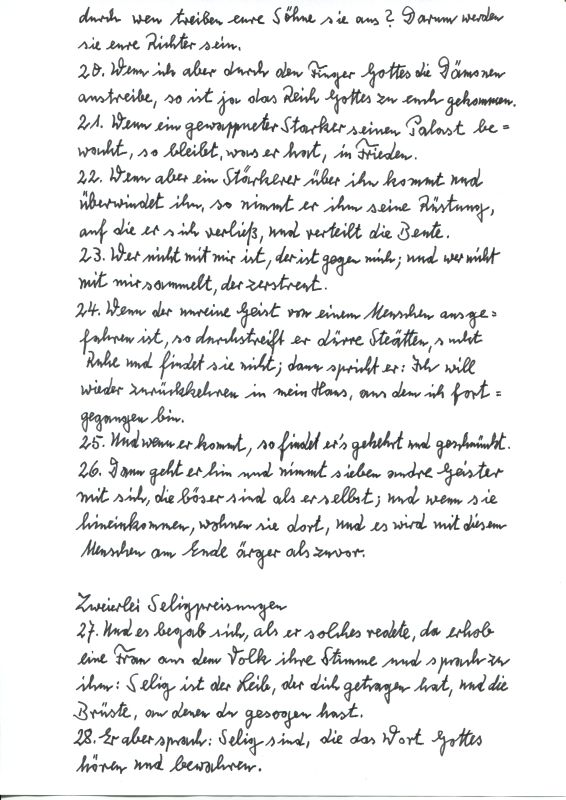 durch wen treiben eure Söhne sie aus? Darum werden
sie eure Richter sein.
20. Wenn ich aber durch den Finger Gottes die Dämonen
austreibe, so ist ja das Reich Gottes zu euch gekommen.
21. Wenn ein gewappneter Starker seinen Palast be=
wacht, so bleibt, was er hat, in Frieden.
22. Wenn aber ein Stärkerer über ihn kommt und
überwindet ihn, so nimmt er ihm seine Rüstung,
auf die er sich verließ, und verteilt die Beute.
23. Wer nicht mit mir ist, der ist gegen mich; und wer nicht
mit mir sammelt, der zerstreut.
24. Wenn der unreine Geist von einem Menschen ausge=
fahren ist, so durchstreift er dürre Stätten, sucht
Ruhe und findet sie nicht; dann spricht er: Ich will
wieder zurückkehren in mein Haus, aus dem ich fort=
gegangen bin.
25. Und wenn er kommt, so findet er's gekehrt und geschmückt.
26. Dann geht er hin und nimmt sieben andre Geister
mit sich, die böser sind als er selbst; und wenn sie
hineinkommen, wohnen sie dort, und es wird mit diesem
Menschen am Ende ärger als zuvor.
Zweierlei Seligpreisungen
27. Und es begab sich, als er solches redete, da erhob
eine Frau aus dem Volk ihre Stimme und sprach zu
ihm: Selig ist der Leib, der dich getragen hat, und die
Brüste, an denen du gesogen hast.
28. Er aber sprach: Selig sind, die das Wort Gottes
hören und bewahren.